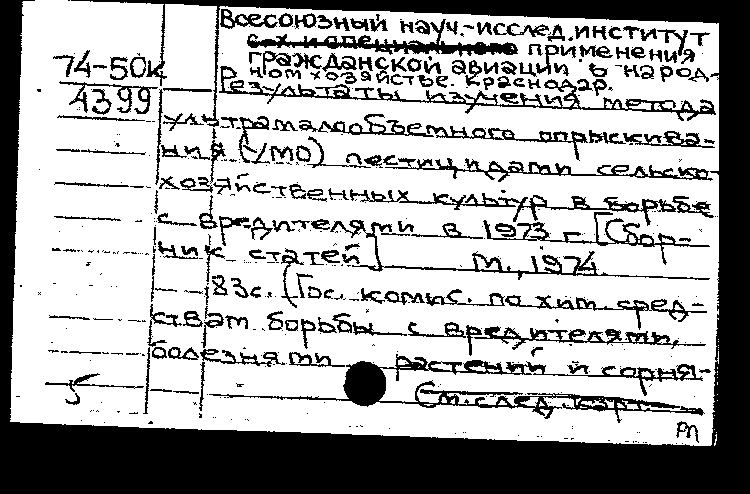 Всесоюзный науч.-исслед. институт
с.-х. и специального применения
74-50к гражданской авиации в народ-
ном хозяйстве. Краснодар.
4399 Результаты изучения метода
ультрамалообъемного опрыскива-
ния (УМО) пестицидами сельско-
хозяйственных культур в борьбе
с вредителями в 1973 г. [Сбор-
ник статей] М., 1974.
83с. (Гос. комис. по хим. сред-
ствам борьбы с вредителями,
болезнями растений и сорня-
5 См. след. карт.
РП